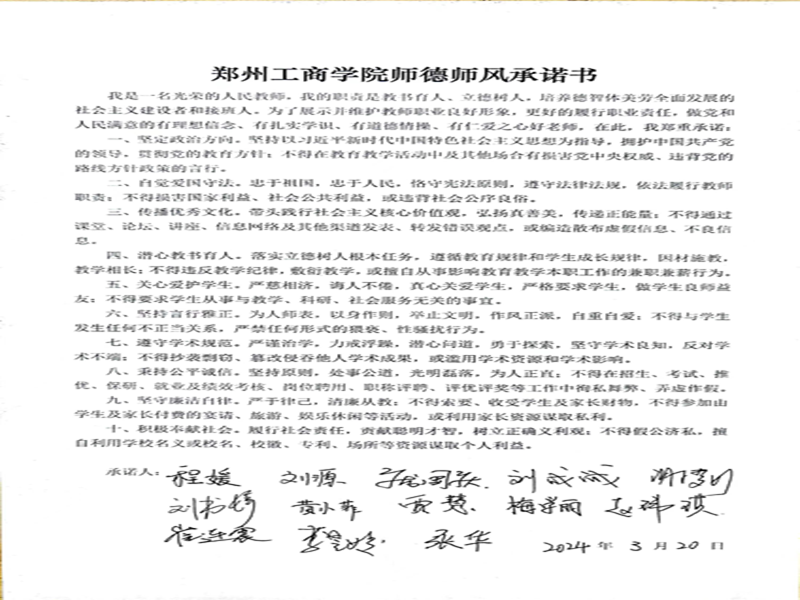 郑州工商学院师德师风承诺书
我是一名光荣的人民教师，我的职责是教书育人、立德树人，培养德智体美劳全面发展的
社会主义建设者和接班人。为了展示并维护教师职业良好形象，更好的履行职业责任，做党和
人民满意的有理想信念、有扎实学识、有道德情操、有仁爱之心好老师，在此，我郑重承诺：
一、坚定政治方向。坚持以习近平新时代中国特色社会主义思想为指导，拥护中国共产党
的领导，贯彻党的教育方针；不得在教育教学活动中及其他场合有损害党中央权威、违背党的
路线方针政策的言行。
二、自觉爱国守法。忠于祖国，忠于人民，恪守宪法原则，遵守法律法规，依法履行教师
职责；不得损害国家利益、社会公共利益，或违背社会公序良俗。
三、传播优秀文化。带头践行社会主义核心价值观，弘扬真善美，传递正能量；不得通过
课堂、论坛、讲座、信息网络及其他渠道发表、转发错误观点，或编造散布虚假信息、不良信
息。
四、潜心教书育人。落实立德树人根本任务，遵循教育规律和学生成长规律，因材施教，
教学相长；不得违反教学纪律，敷衍教学，或擅自从事影响教育教学本职工作的兼职兼薪行为。
五、关心爱护学生。严慈相济，诲人不倦，真心关爱学生，严格要求学生，做学生良师益
友；不得要求学生从事与教学、科研、社会服务无关的事宜。
六、坚持言行雅正。为人师表，以身作则，举止文明，作风正派，自重自爱；不得与学生
发生任何不正当关系，严禁任何形式的猥亵、性骚扰行为。
七、遵守学术规范。严谨治学，力戒浮躁，潜心问道，勇于探索，坚守学术良知，反对学
术不端；不得抄袭剽窃、篡改侵吞他人学术成果，或滥用学术资源和学术影响。
八、秉持公平诚信。坚持原则，处事公道，光明磊落，为人正直；不得在招生、考试、推
优、保研、就业及绩效考核、岗位聘用、职称评聘、评优评奖等工作中徇私舞弊、弄虚作假。
九、坚守廉洁自律。严于律己，清廉从教；不得索要、收受学生及家长财物，不得参加由
学生及家长付费的宴请、旅游、娱乐休闲等活动，或利用家长资源谋取私利。
十、积极奉献社会。履行社会责任，贡献聪明才智，树立正确义利观；不得假公济私，擅
自利用学校名义或校名、校徽、专利、场所等资源谋取个人利益。
承诺人：程媛 刘源 刘成诚
刘书婷 黄小菲 贾慧 赵玮琪
崔连震 张华 2024年3月20日